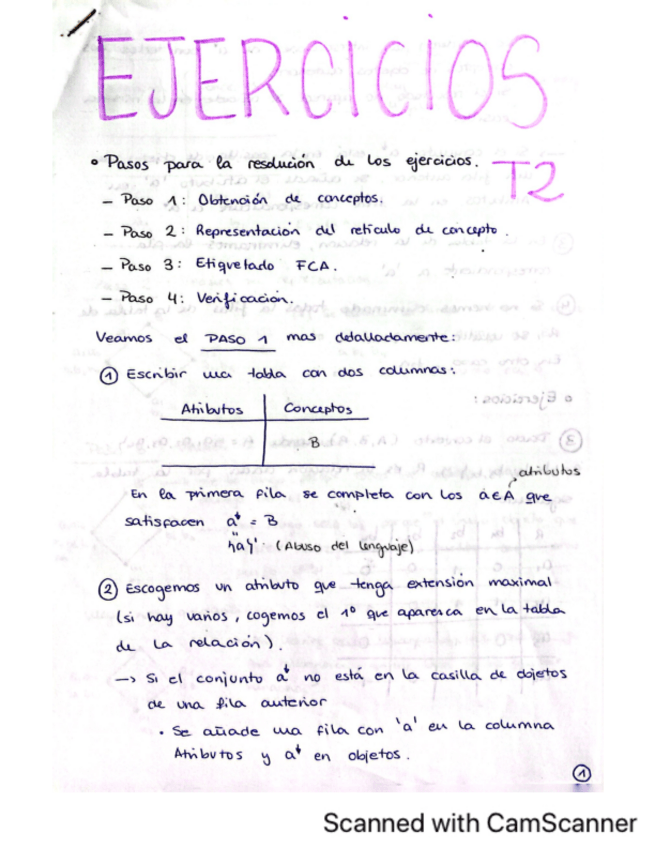 EJERCICIOS
T2
• Pasos para la resolución de los ejercicios.
- Paso 1: Obtención de conceptos.
- Paso 2: Representación del retículo de concepto.
- Paso 3: Etiquetado FCA.
- Paso 4: Verificación.
Veamos el PASO 1 mas detalladamente:
① Escribir una tabla con dos columnas:
Atributos | Conceptos
B
atributos
En la primera fila se completa con los a∈A que
satisfacen a↓ = B
{a}↓ (Abuso del lenguaje)
② Escogemos un atributo que tenga extensión maximal
(si hay varios, cogemos el 1º que aparezca en la tabla
de la relación).
→ Si el conjunto a↓ no está en la casilla de objetos
de una fila anterior
• Se añade una fila con 'a' en la columna
Atributos y a↓ en objetos.
①
Scanned with CamScanner